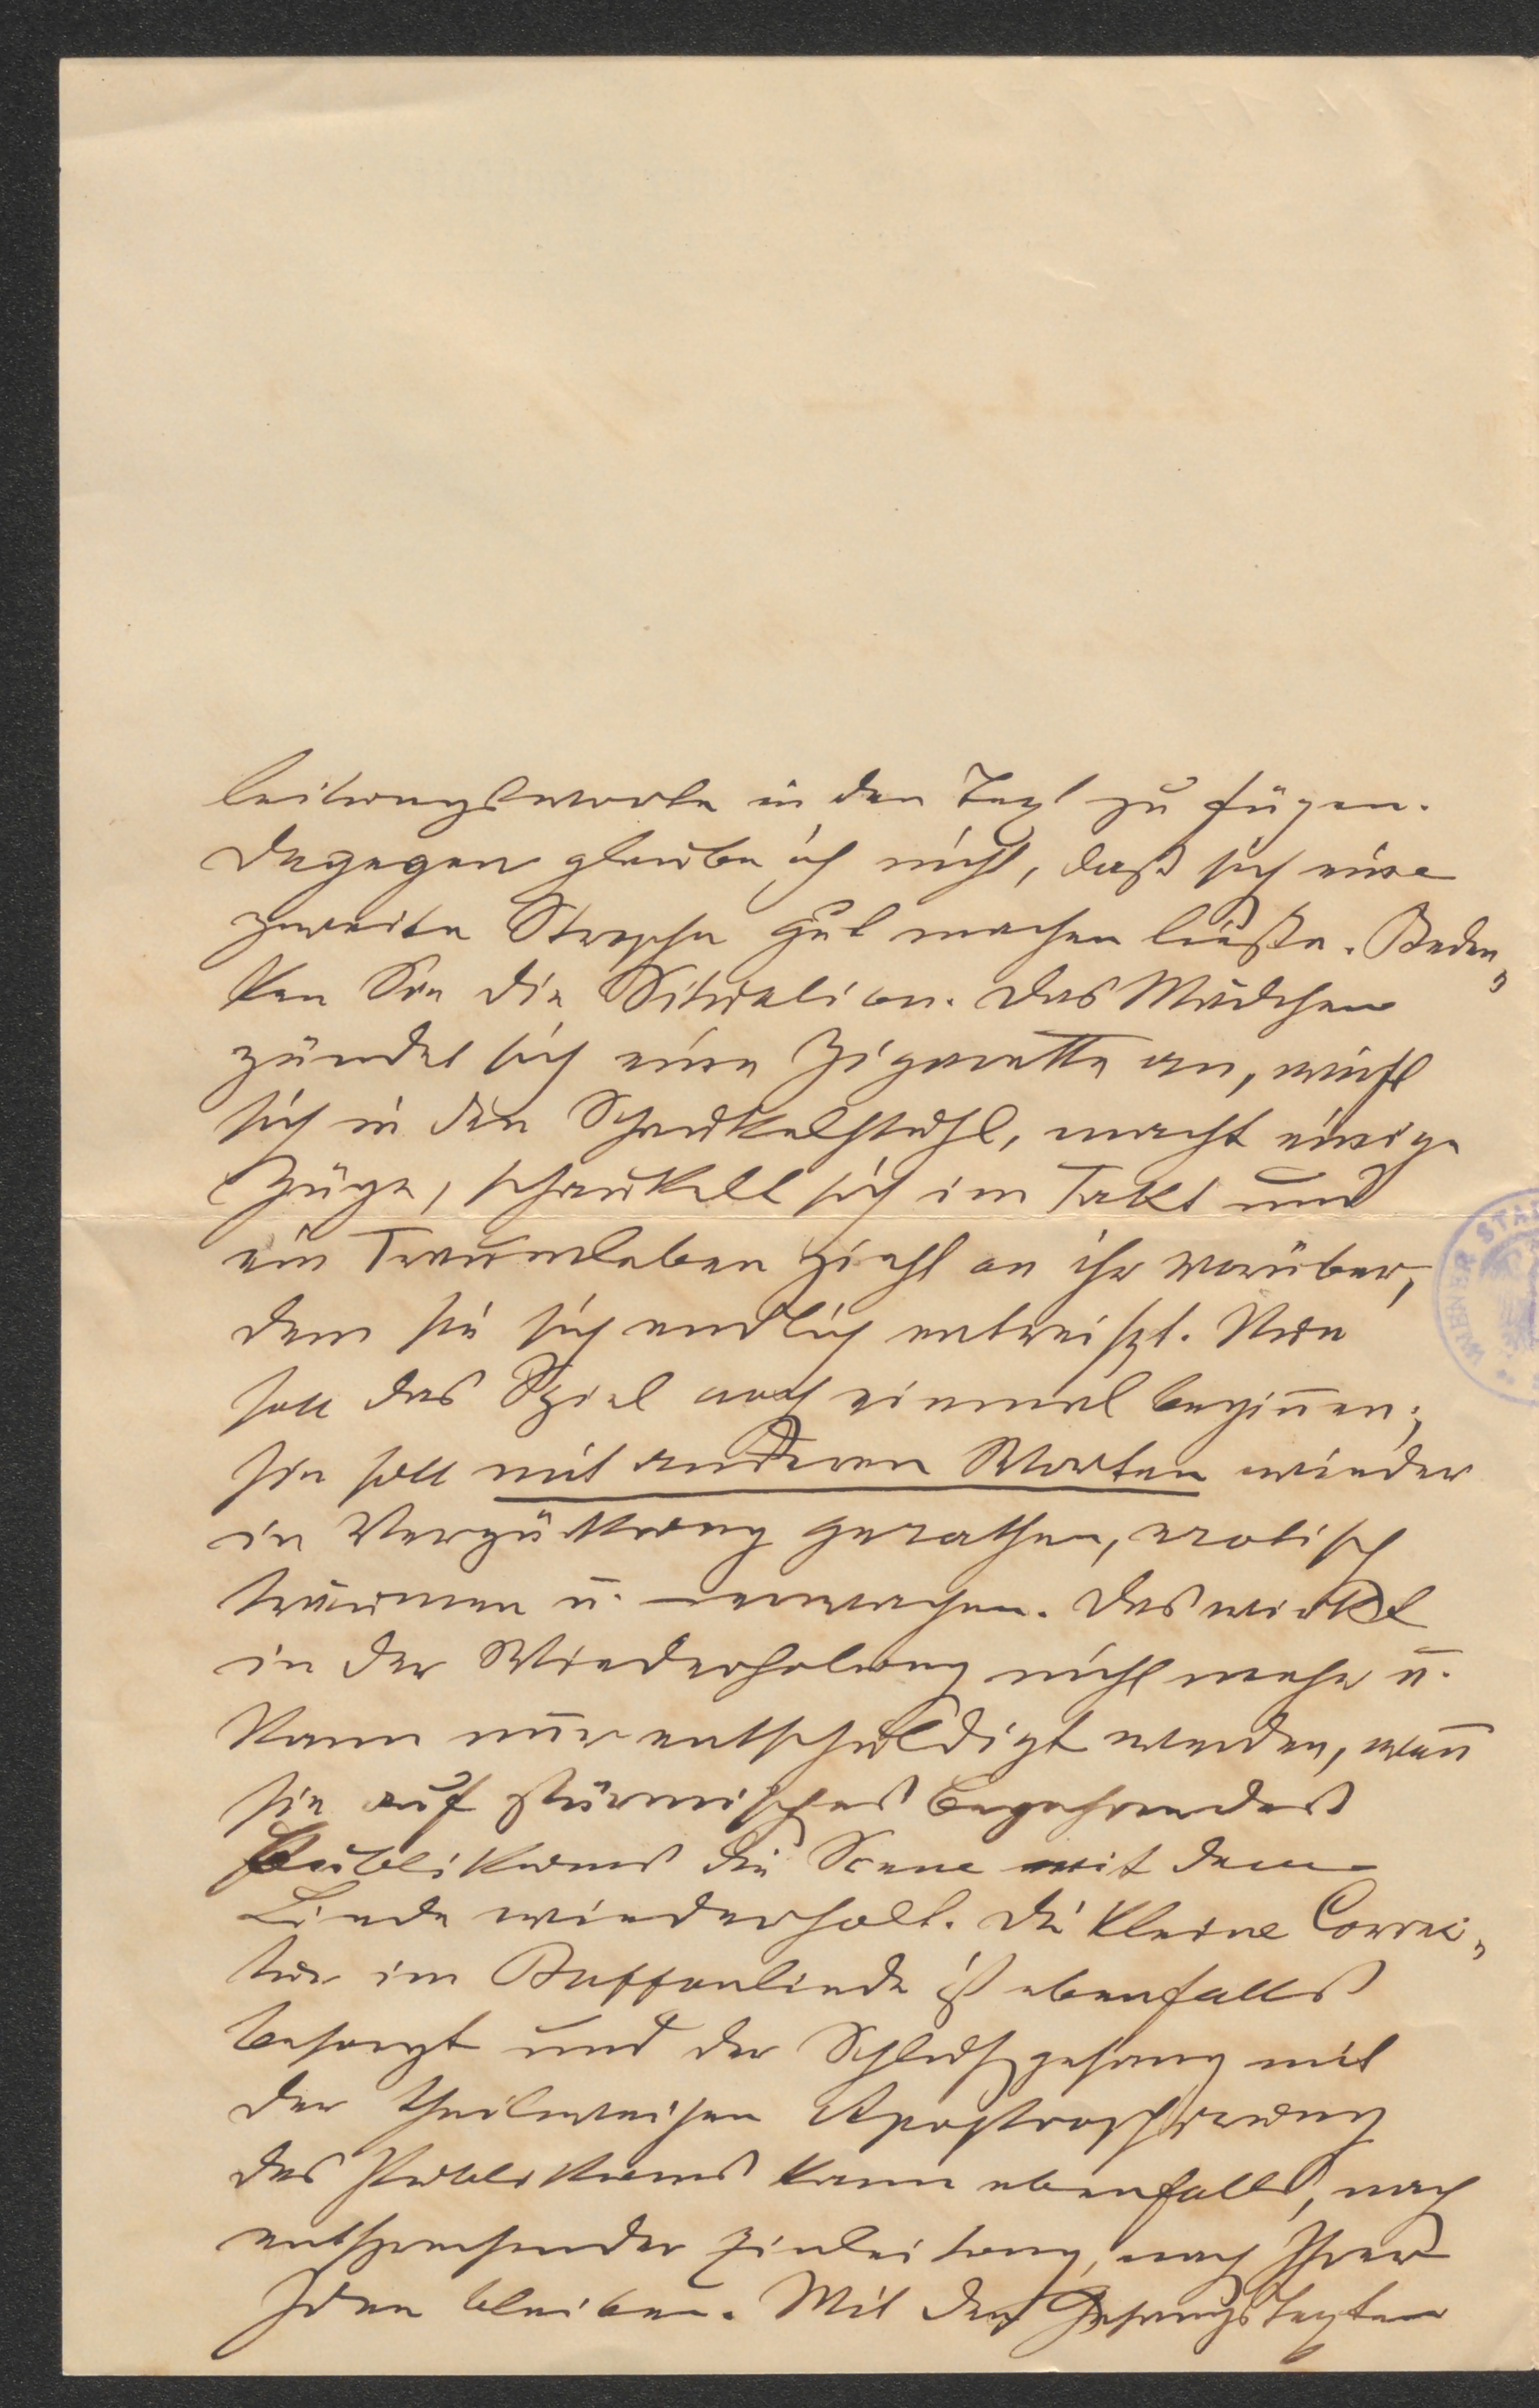 leitungsworte in den Text zu fügen.
Dagegen glaube ich nicht, daß sich eine
zweite Strophe gut machen ließe. Beden„
ken Sie die Situation. Das Mädchen
zündet sich eine Zigarette an, wirft
sich in den Schaukelstuhl, macht einige
Züge, schaukelt sich im Takt und
ein Traumleben zieht an ihr vorüber,
dem sie sich endlich entreißt. Nun
soll das Spiel noch einmal begiñen;
sie soll mit anderen Worten wieder
in Verzückung gerathen, erotisch
träumen u. erwachen. Das wirkt
in der Wiederholung nicht mehr u.
kann nur entschuldigt werden, weñ
sie auf stürmisches Begehren des
Publikums die Scene mit dem
Liede wiederholt. Die kleine Correc„
tur im Buffonliede ist ebenfalls
besorgt und der Schlußgesang mit
der theilweisen Apostrophirung
des Publikums kann ebenfalls, nach
entsprechender Einleitung, nach Ihrer
Idee bleiben. Mit den Gesangstexten
WIENER STA